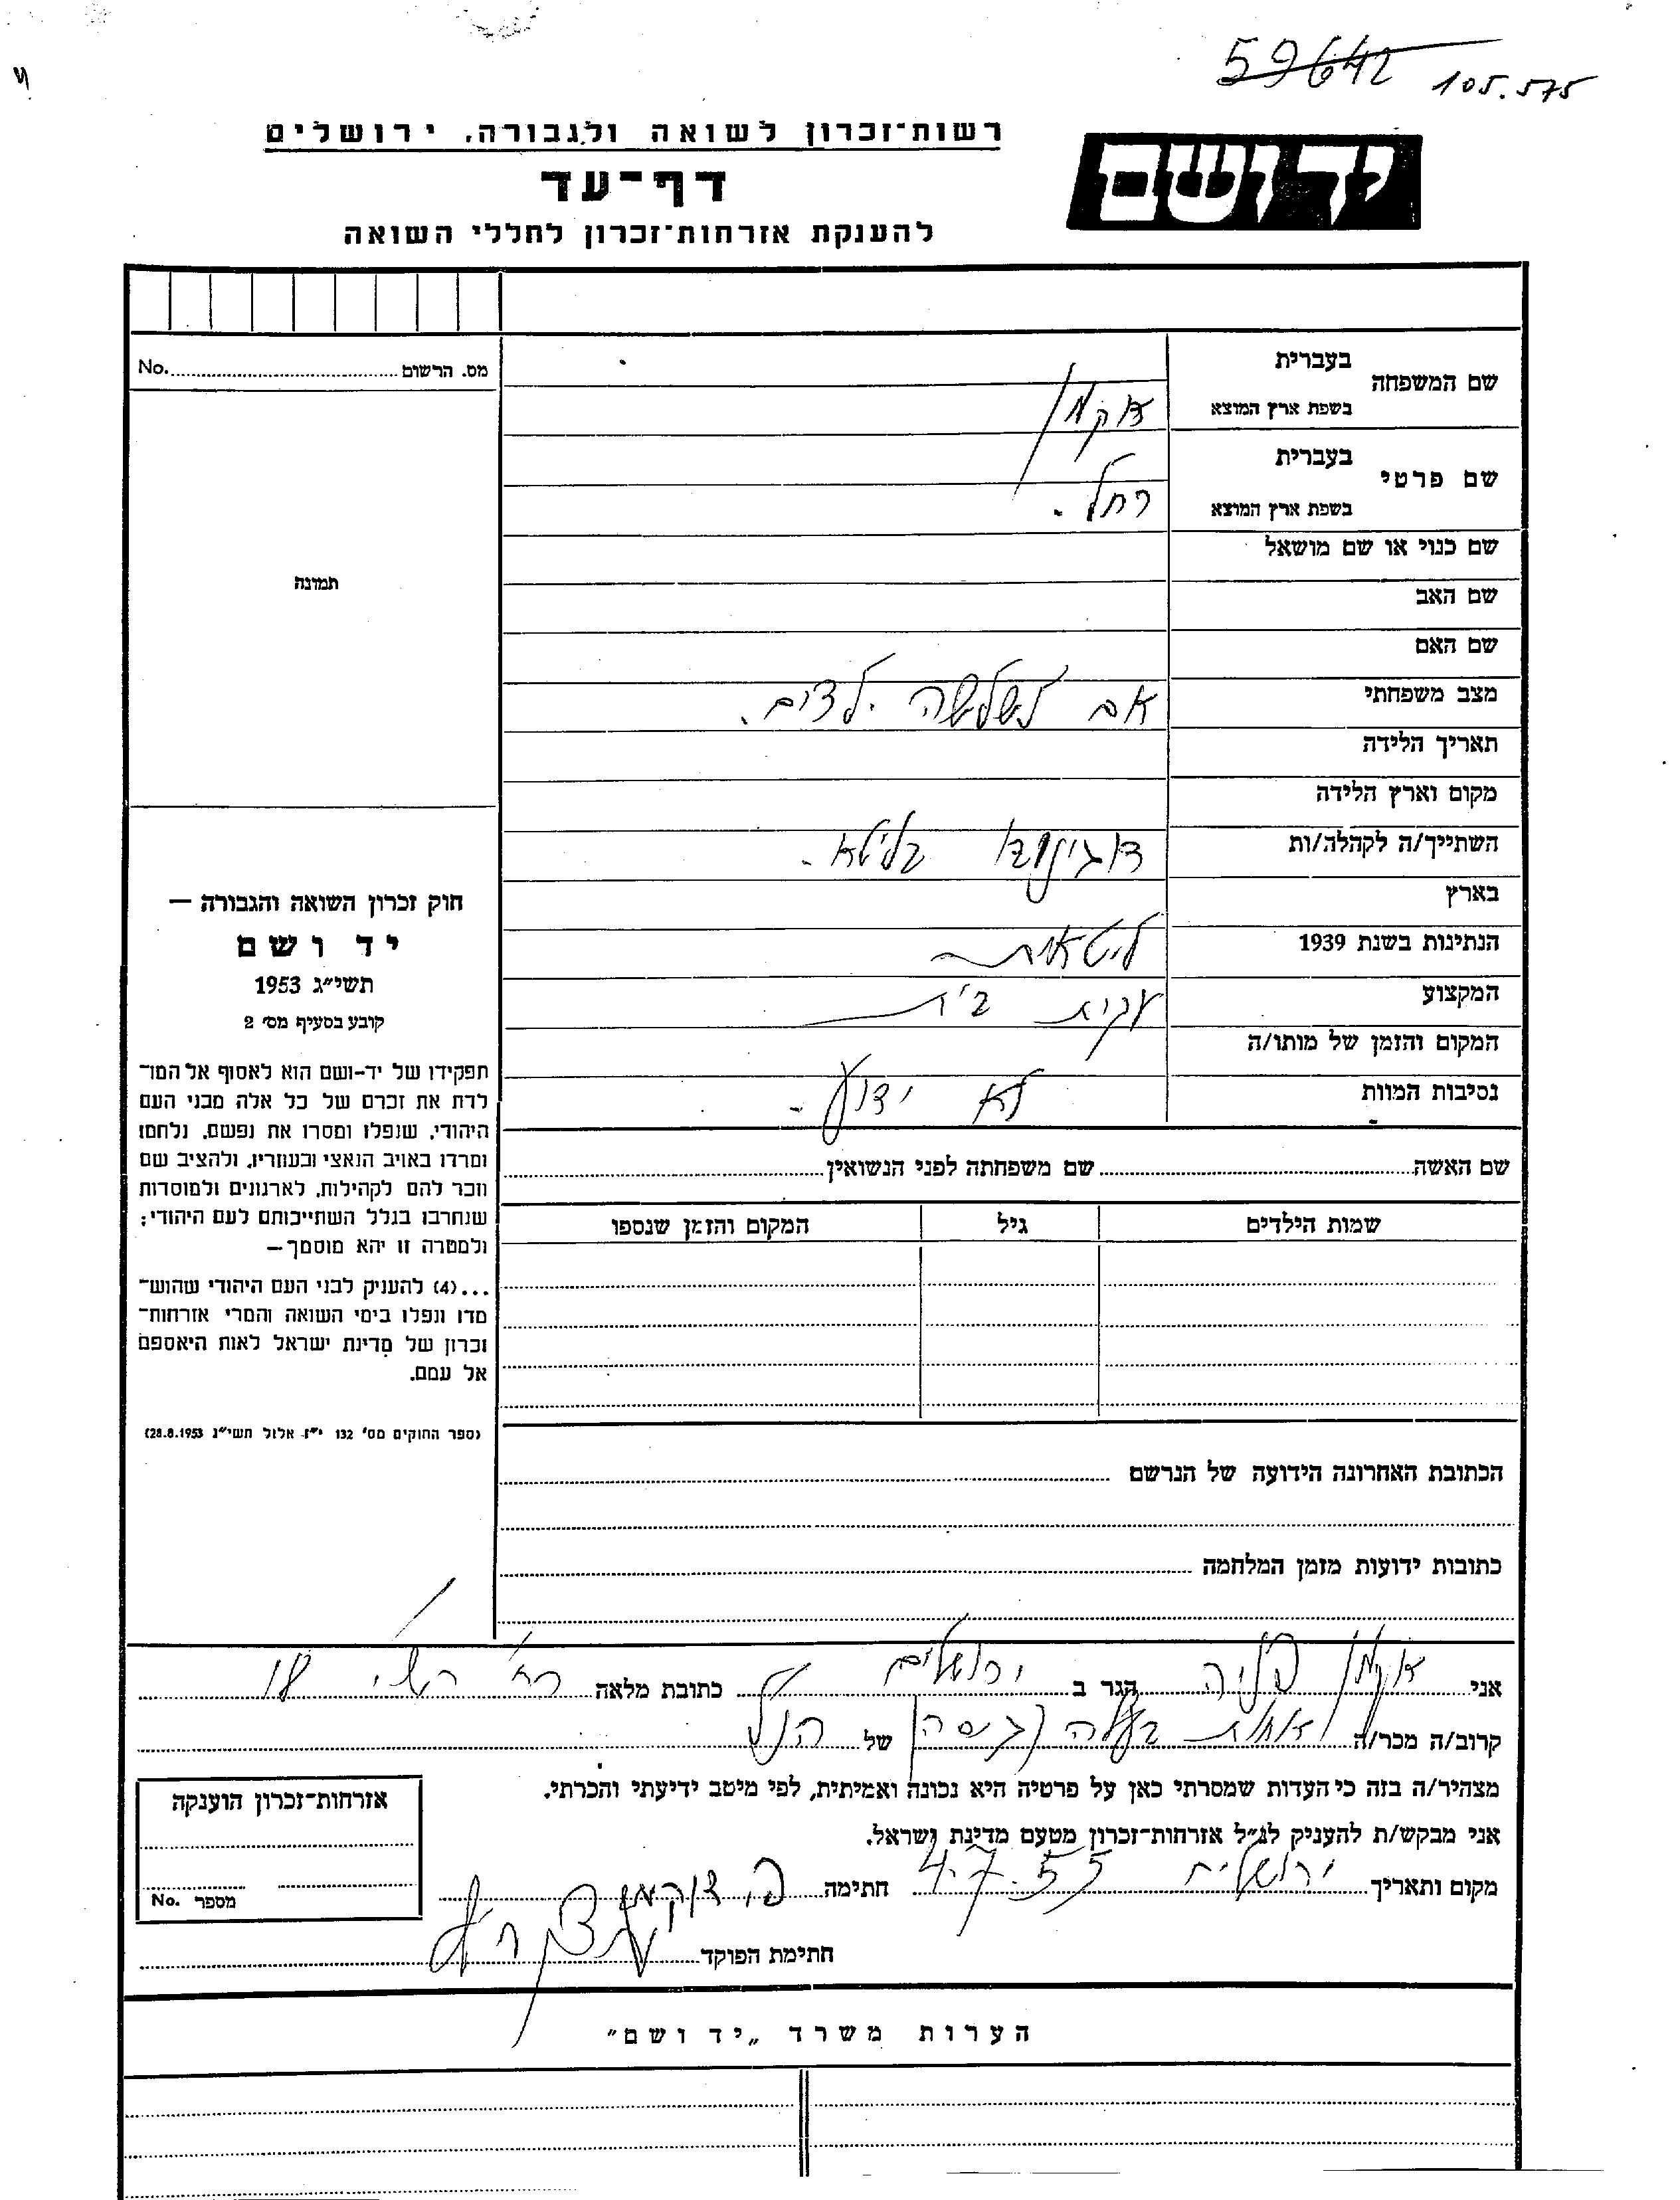 59642 105.575
רשות־זכרון לשואה ולגבורה, ירושלים
יד ושם
דף־עד
להענקת אזרחות־זכרון לחללי השואה
מס. הרשום No.
תמונה
שם המשפחה בעברית
בשפת ארץ המוצא
שם פרטי בעברית
בשפת ארץ המוצא רחל.
שם כנוי או שם מושאל
שם האב
שם האם
מצב משפחתי אם לשלשה ילדים.
תאריך הלידה
מקום וארץ הלידה
השתייך/ה לקהלה/ות בליטא.
בארץ
הנתינות בשנת 1939 ליטאית
המקצוע עקרת בית
המקום והזמן של מותו/ה
נסיבות המוות לא ידוע.
שם האשה שם משפחתה לפני הנשואין
שמות הילדים גיל המקום והזמן שנספו
הכתובת האחרונה הידועה של הנרשם
כתובות ידועות מזמן המלחמה
חוק זכרון השואה והגבורה —
יד ושם
תשי״ג 1953
קובע בסעיף מס׳ 2
תפקידו של יד־ושם הוא לאסוף אל המו־
לדת את זכרם של כל אלה מבני העם
היהודי, שנפלו ומסרו את נפשם, נלחמו
ומרדו באויב הנאצי ובעוזריו, ולהציב שם
וזכר להם לקהילות, לארגונים ולמוסדות
שנחרבו בגלל השתייכותם לעם היהודי;
ולמטרה זו יהא מוסמך—
...(4) להעניק לבני העם היהודי שהוש־
מדו ונפלו בימי השואה והמרי אזרחות־
זכרון של מדינת ישראל לאות היאספם
אל עמם.
(ספר החוקים מס׳ 132 י״ז אלול תשי״ג 28.8.1953)
אני הגר ב ירושלים כתובת מלאה 18
קרוב/ה מכר/ה אחות בעלה (גיסה) של הנ״ל
מצהיר/ה בזה כי העדות שמסרתי כאן על פרטיה היא נכונה ואמיתית, לפי מיטב ידיעתי והכרתי.
אני מבקש/ת להעניק לנ״ל אזרחות־זכרון מטעם מדינת ישראל.
מקום ותאריך ירושלים 4.7.55 חתימה
חתימת הפוקד
אזרחות־זכרון הוענקה
מספר No.
הערות משרד „יד ושם״